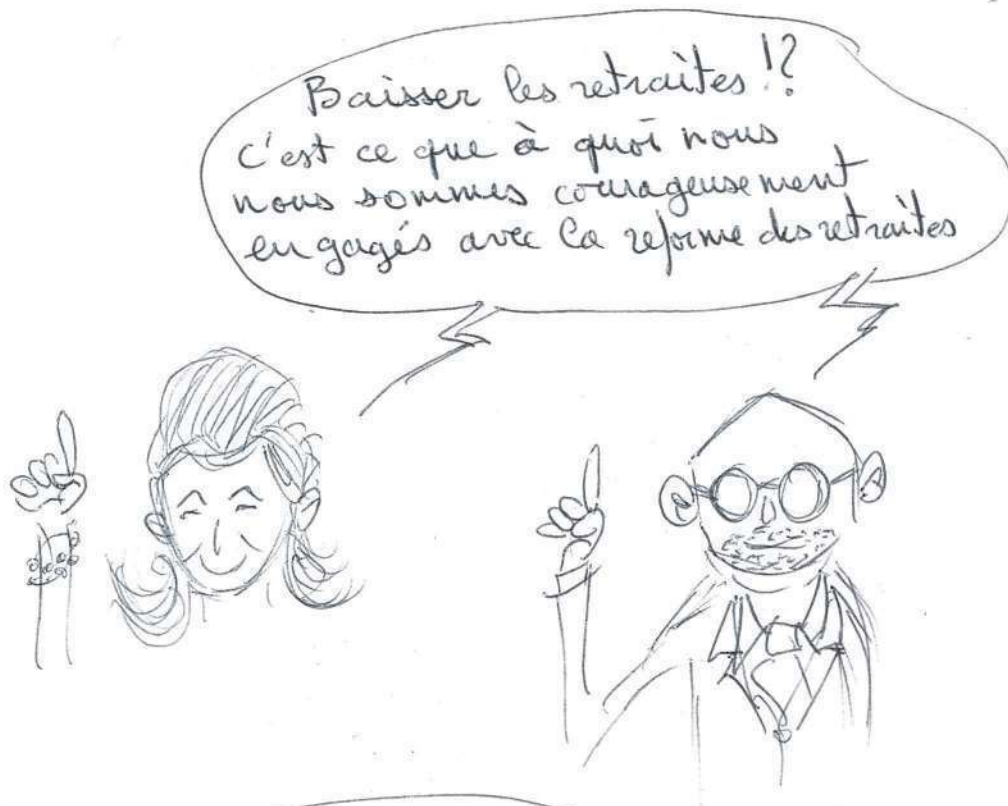 Baisser les retraites !?
c'est ce que à quoi nous
nous sommes courageusement
engagés avec la reforme des retraites